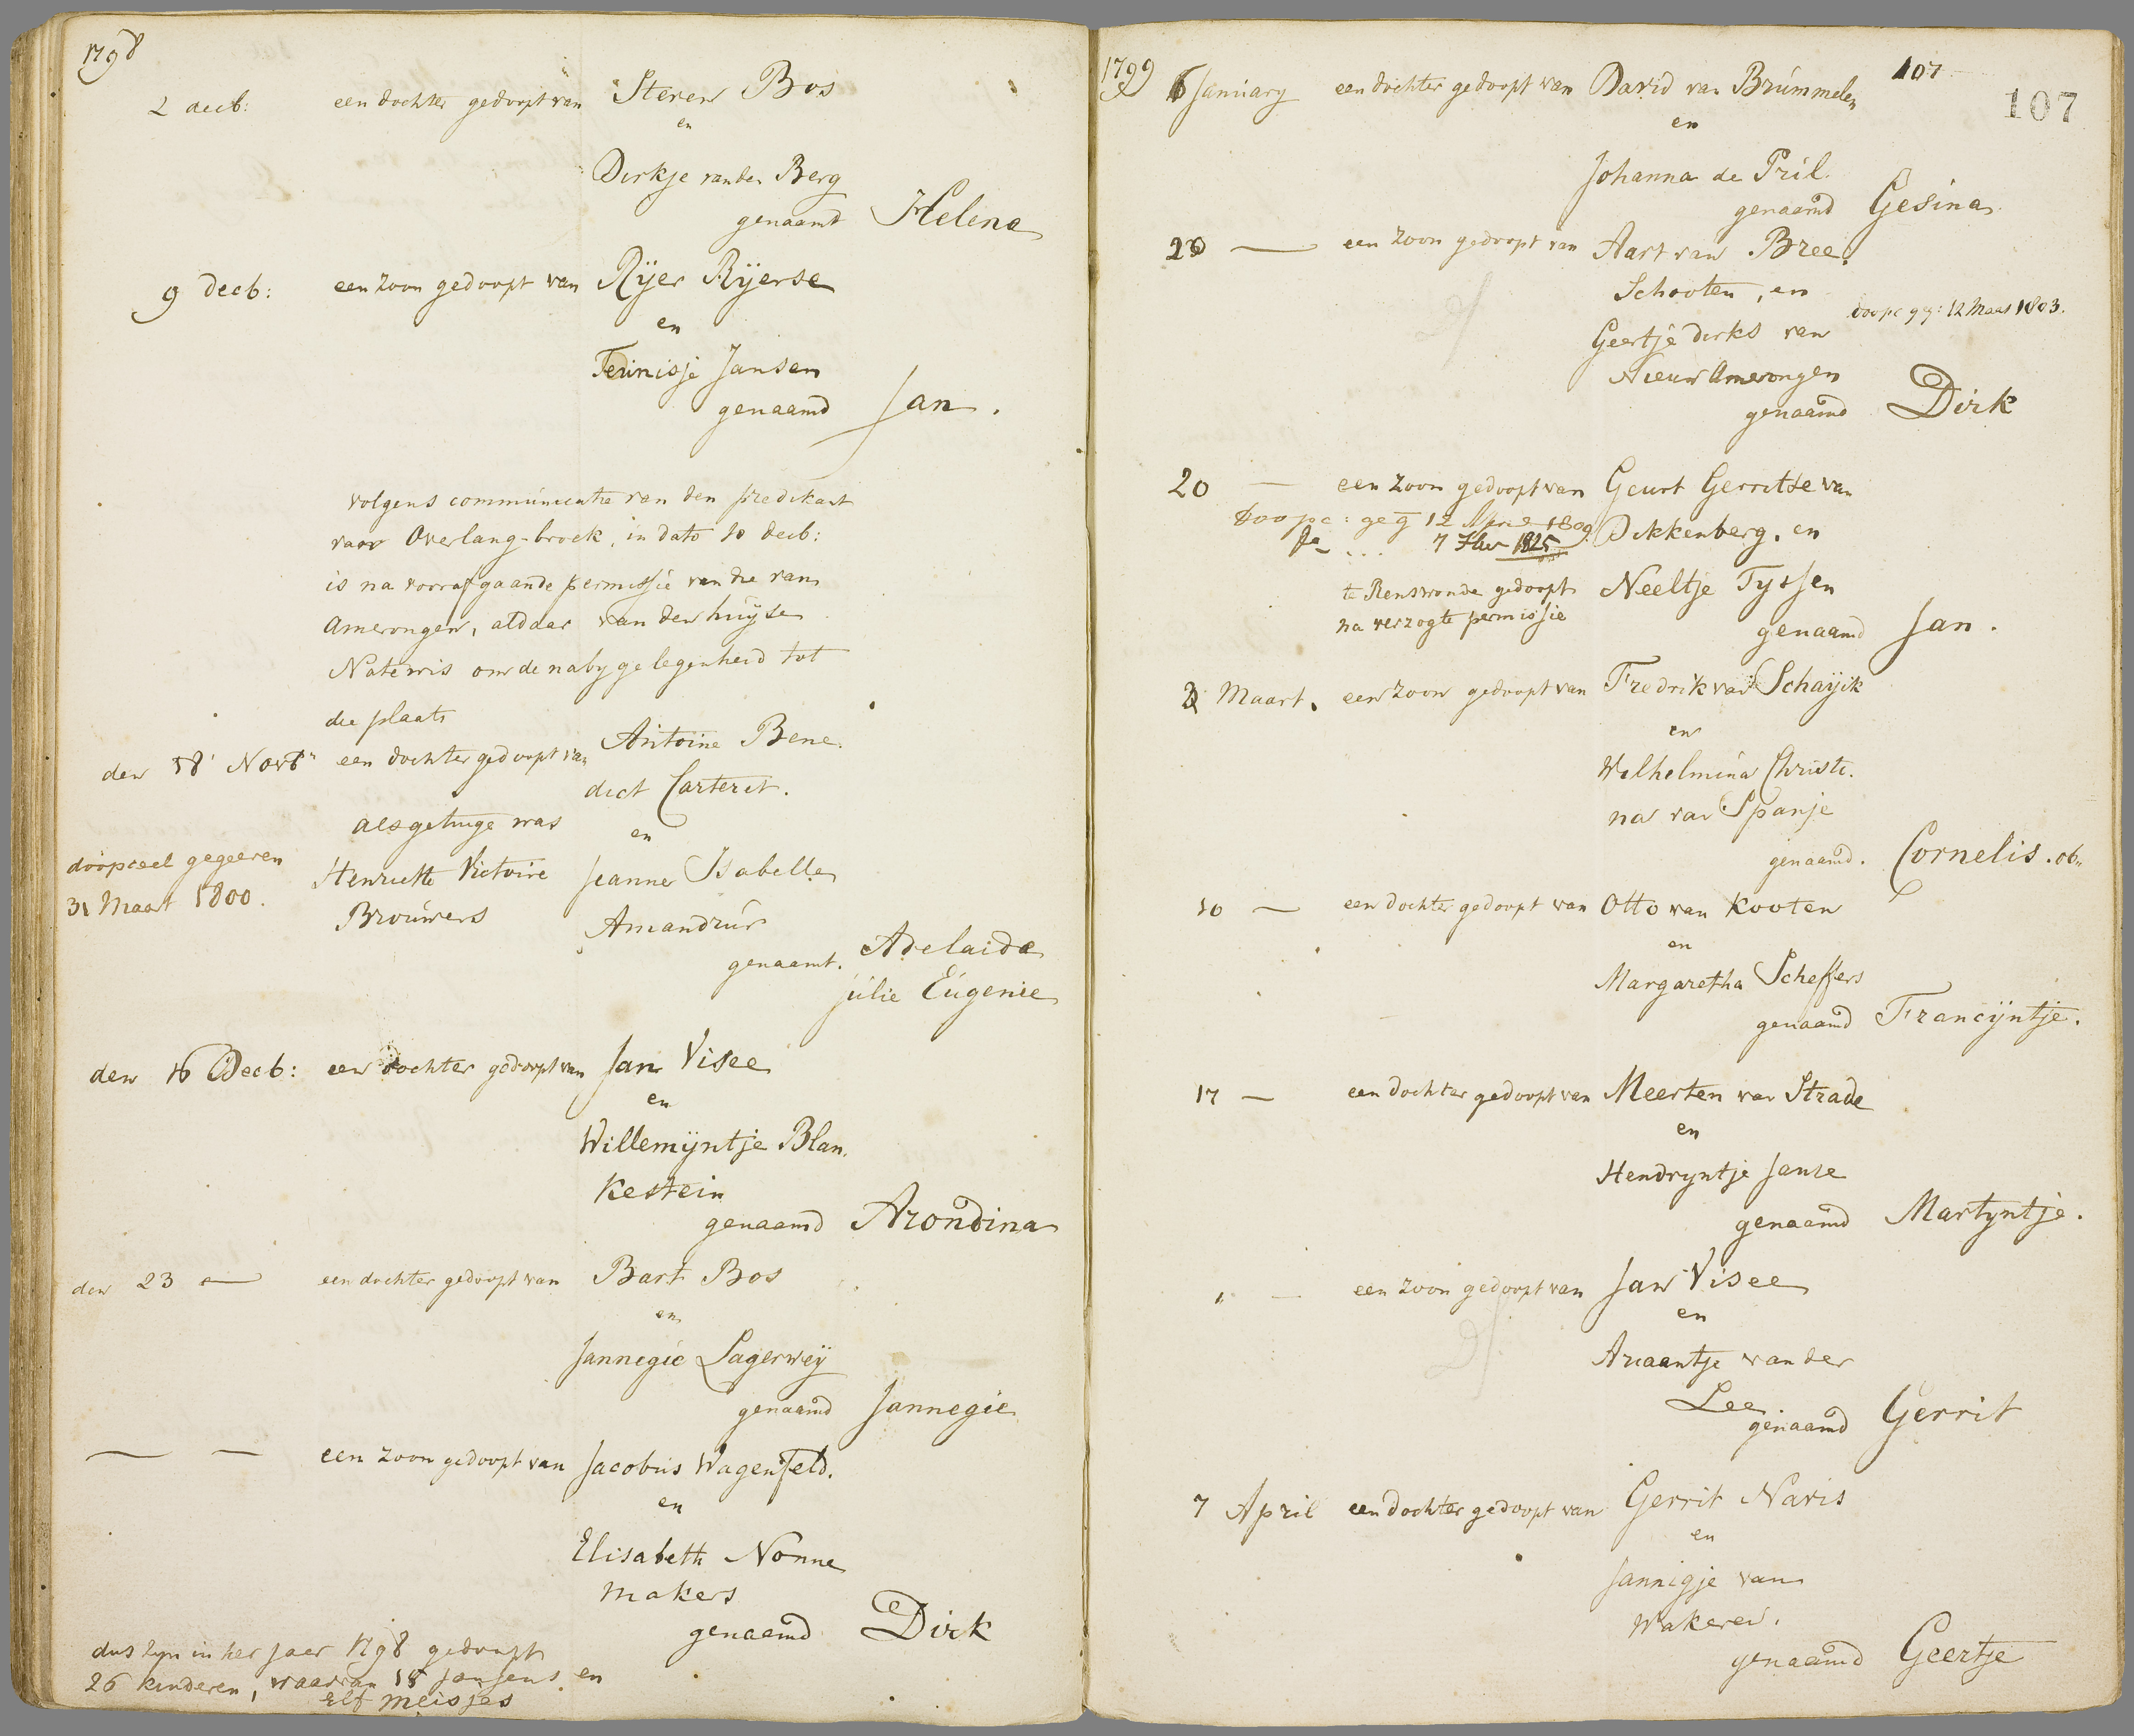 1798
2 decb: een dochter gedoopt van Steven Bos
en
Dirkje van der Berg
genaamt Helena
9 decb: een zoon gedoopt van Rÿer Rÿerse
en
Teunisje Jansen
genaamd Jan.
volgens communicatie van den predikant
van Overlang-broek, in dato 10 decb:
is na voorafgaande permissie van die van
Amerongen, aldaar van den huÿse
Natewis om de naby gelegenheid tot
die plaats
den 18 Novb een dochter gedoopt van Antoine Bene-
dict Carteret.
als getuige was en
doopceel gegeeven Henriette Victoire Jeanne Isabelle
31 Maart 1800. Brouwers Amandrús
genaamt. Adelaide
julie Eugenie
den 16 Decb: een dochter gedoopt van Jan Visee
en
Willemÿntje Blan-
kestein
genaamd Arondina
den 23 — een dochter gedoopt van Bart Bos
en
Jannegie Lagerweÿ
genaamd Jannegie
— — een zoon gedoopt van Jacobus Wagenfeld.
en
Elisabeth Nonne
makers
genaamd Dirk
dus zyn in het jaar 1798 gedoopt
26 kinderen, waarvan 15 jongens en
elf meisjes
1799 107
6 January een dochter gedoopt van David van Brummelen
107
en
Johanna de Pril.
genaamd Gesina
20 — een zoon gedoopt van Aart van Bree-
Schooten, en
doopc geg: 12 Maart 1803.
Geertje dirks van
Nieuw Amerongen
genaamd Dirk
20 — een zoon gedoopt van Geurt Gerritse van
Doopc: geg 12 1809 Dikkenberg, en
7 1825
te Renswoude gedoopt Neeltje Tyssen
na verzogte permissie
genaamd Jan.
3 Maart. een zoon gedoopt van Fredrik van Schaÿik
en
Wilhelmina Christi-
na van Spanje
genaamd. Cornelis. ob.
10 — een dochter gedoopt van Otto van Kooten
en
Margaretha Scheffers
genaamd Francÿntje.
17 — een dochter gedoopt van Meerten van Strade
en
Hendryntje Janse
genaamd Martyntje.
" — een zoon gedoopt van Jan Visee
en
Ariaantje van der
Lee
genaamd Gerrit
7 April een dochter gedoopt van Gerrit Navis
en
Jannigje van
Wakeren.
genaamd Geertje